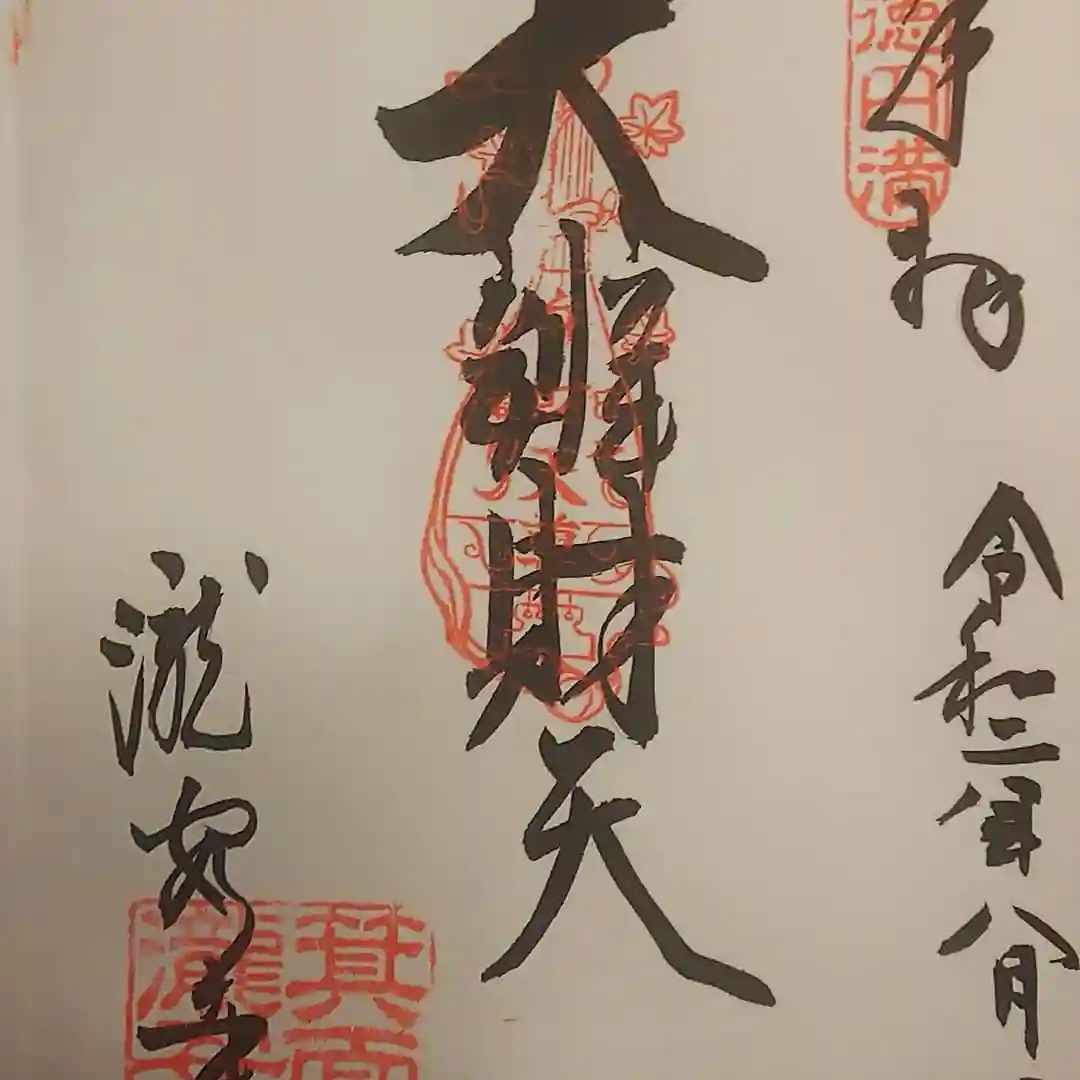 奉拝
徳円満
令和二年八月
大辨財天
瀧安寺
箕面
瀧安